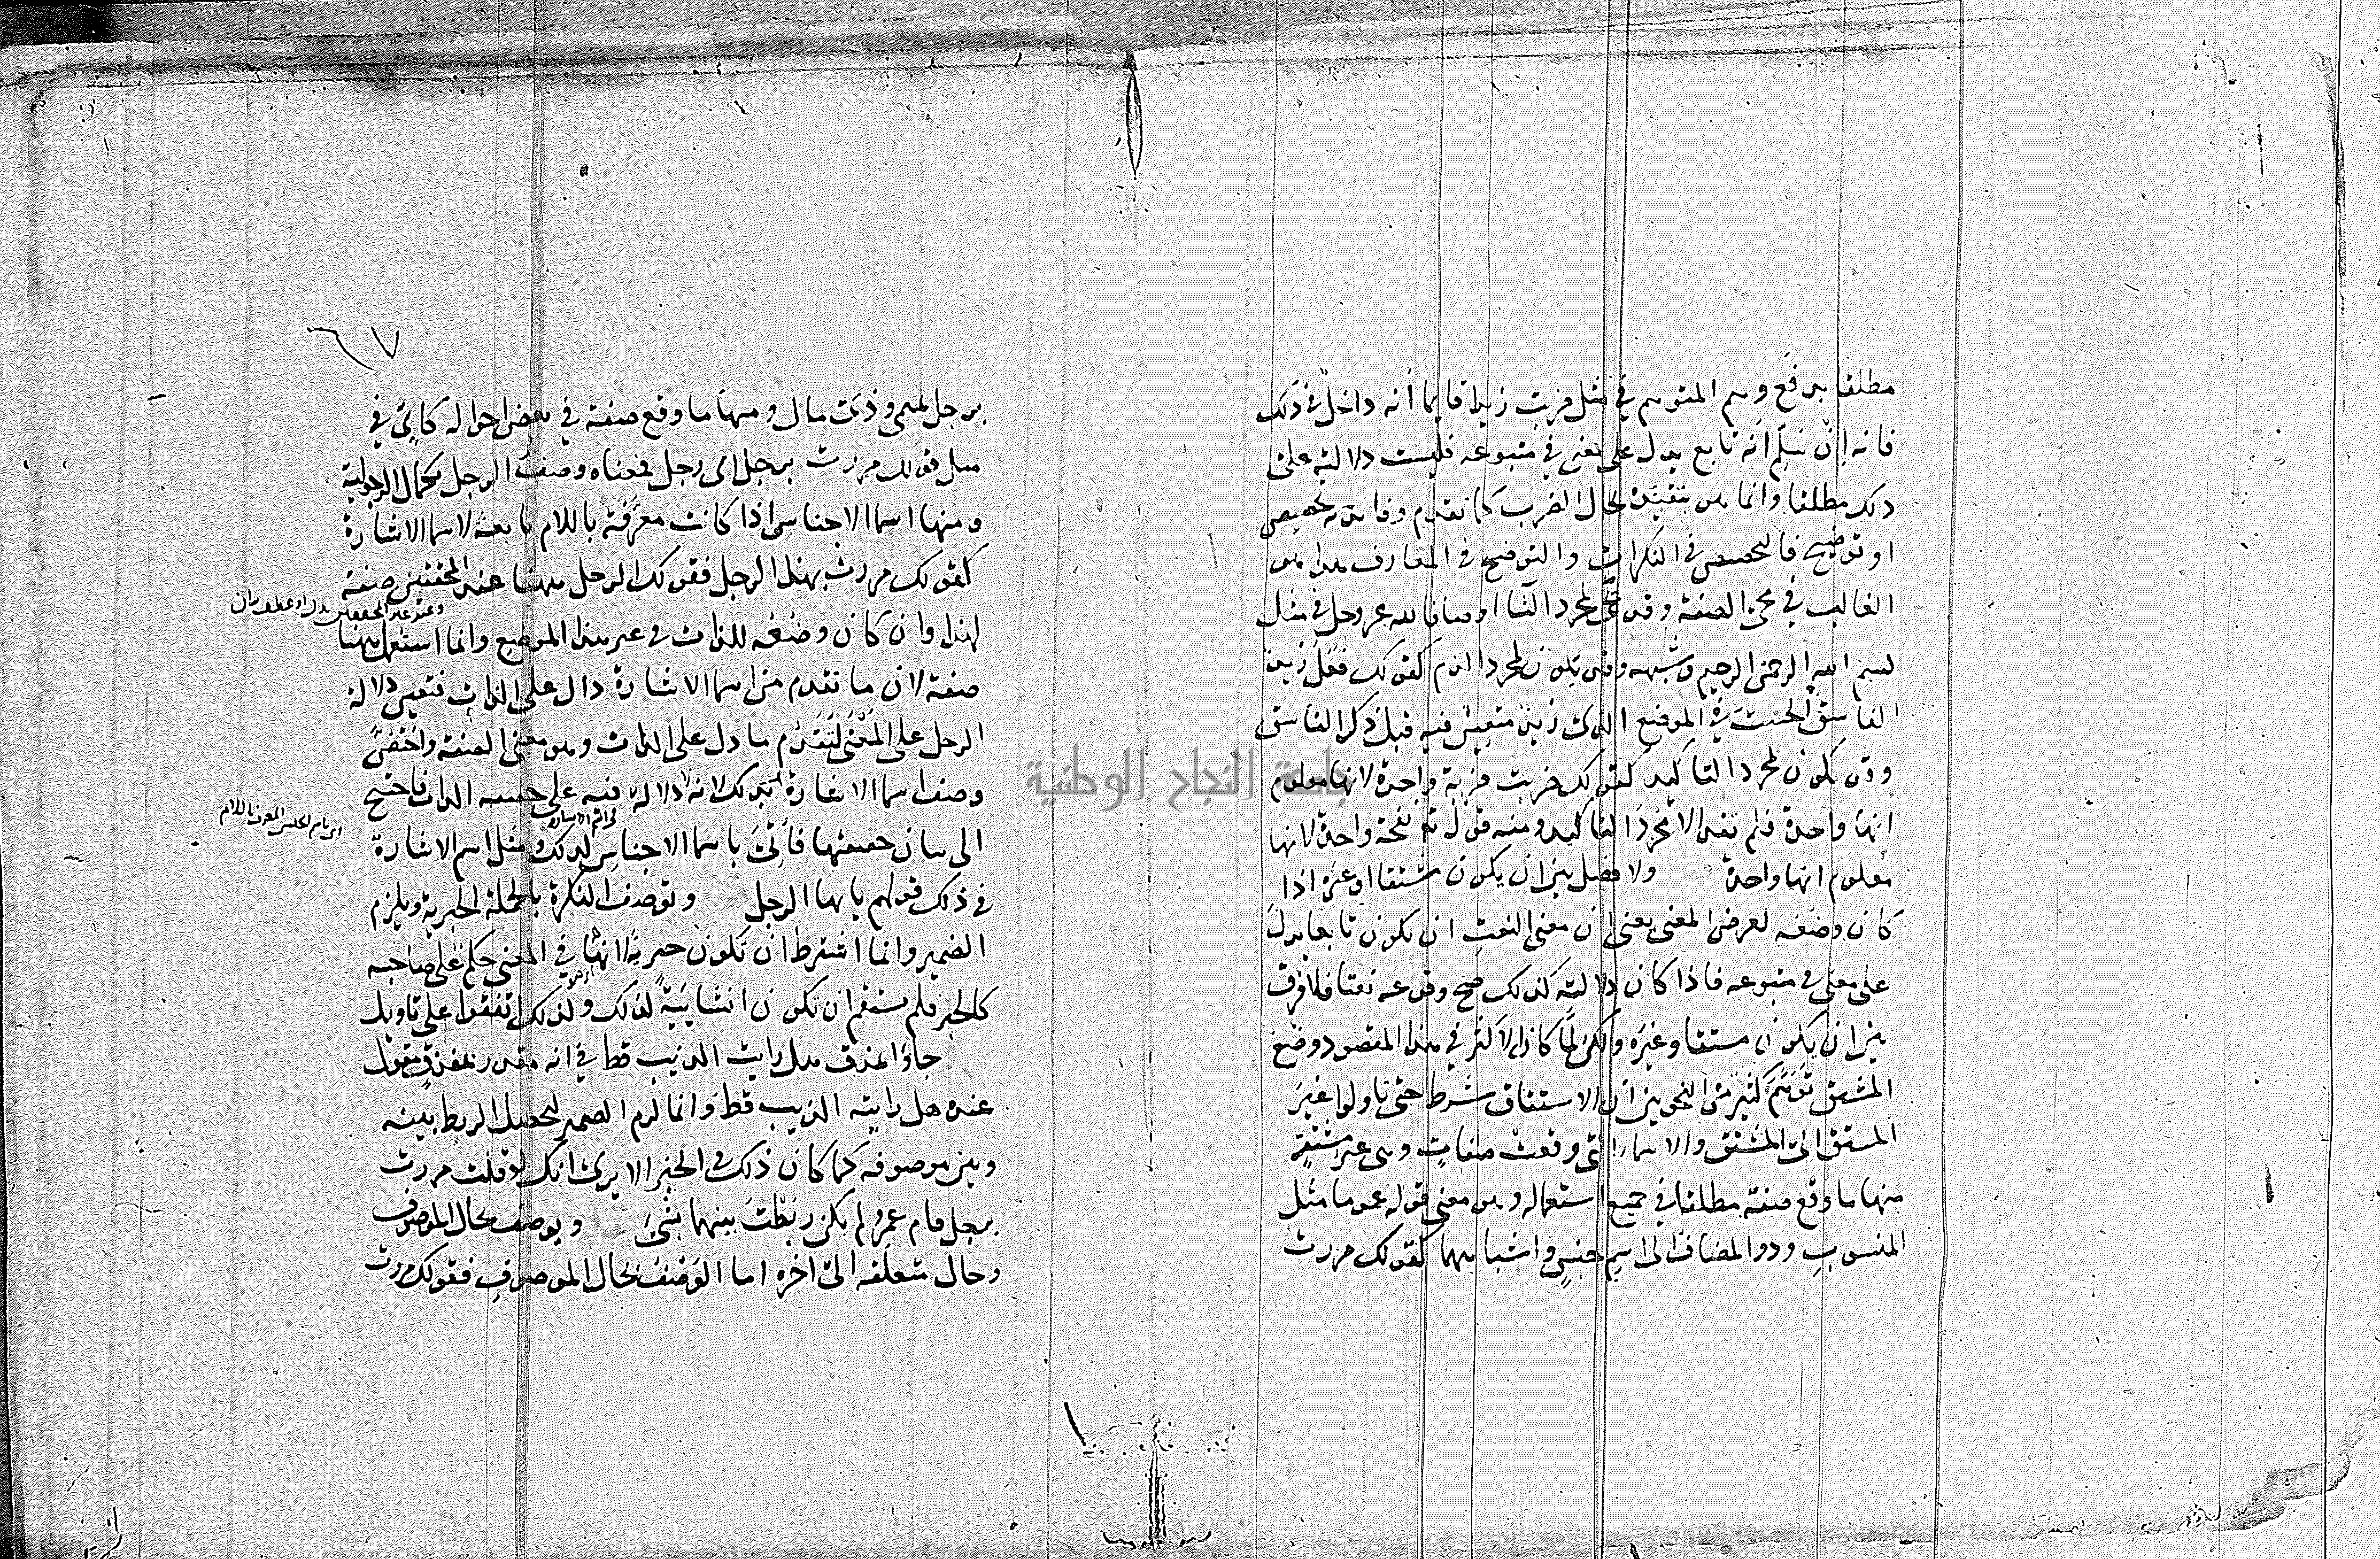 مطلقا يرفع وهم المتوهم في مثل ضربت زيدا قايما أنه داخل في ذلك
فانه إن سلم أنه تابع يدل على معنى في متبوعه فليست دلالته على
ذلك مطلقا وانما هو بتقييده بحال الضرب كما تقدم وفايدته تخصيص
او توضيح فالتخصيص في النكرات والتوضيح في المعارف هذا هو
الغالب في مجئ الصفة وقد تجئ لمجرد الثنا اوصافا لله عز وجل في مثل
بسم الله الرحمن الرحيم وشبهه وقد يكون لمجرد الذم كقولك فعل زيد
الفاسق الخبيث في الموضع الذي زيد متعين فيه قبل ذكر الفاسق
وقد يكون لمجرد التاكيد كقولك ضربت ضربة واحدة لانها معلوم
انها واحدة فلم تفد الا مجرد التاكيد ومنه قوله تع نفخة واحدة لانها
معلوم انها واحدة ولا فصل بين ان يكون مشتقا او غيره اذا
كان وضعه لغرض المعنى يعنى ان معنى النعت ان يكون تابعا يدل
على معنى في متبوعه فاذا كان دلالته كذلك صح وقوعه نعتا فلا فرق
بين ان يكون مشتقا وغيره ولكن لما كان الاكثر في هذا المقصود وضع
المشتق توهم كثير من النحويين ان الاشتقاق شرط حتى تاولوا غير
المشتق الى المشتق والاسما التي وقعت صفات وهي غير مشتقة
منها ما وقع صفة مطلقا في جميع استعماله وهو معنى قوله عموما مثل
المنسوب وذو المضاف الى اسم جنس واشباههما كقولك مررت
٦٧
برجل تميمي وذي مال ومنها ما وقع صفة في بعض احواله كاي في
مثل قولك مررت برجل اي رجل فمعناه وصف الرجل بكمال الرجولية
ومنها اسما الاجناس اذا كانت معرفة باللام تابعة لاسما الاشارة
كقولك مررت بهذا الرجل فقولك الرجل ههنا عند المحققين صفة
وعند غير المحققين بدل او عطف بيان
لهذا وان كان وضعه للذات في غير هذا الموضع وانما استعمل ههنا
صفة لان ما تقدم من اسما الاشارة دال على الذات فتعين دلالة
الرجل على المعنى لتقدم ما دل على الذات وهو معنى الصفة واختص
وصف اسما الاشارة بذلك لانه لا دلالة فيه على حقيقة الذات فاحتيج
اي باسم الجنس المعرف باللام
الى بيان حقيقتها فأتي باسما الاجناس لذلك ومثل اسم الاشارة
في ذلك قولهم يا ايها الرجل وتوصف النكرة بالجملة الخبرية ويلزم
الضمير وانما اشترط ان تكون خبرية لانها في المعنى حكم على صاحبه
كالخبر فلم يستقم ان تكون انشائية لذلك ولذلك اتفقوا على تاويل
جاؤا بمذق هل رايت الذيب قط في انه مقدر بمذق مقول
عنده هل رايت الذيب قط وانما لزم الضمير ليحصل الربط بينه
وبين موصوفه كما كان ذلك في الخبر الا يرى انك لو قلت مررت
برجل قام عمرو لم يكن ربطت بينهما بشئ ويوصف بحال الموصوف
وحال متعلقه الى اخره اما الوصف بحال الموصوف فقولك مررت
جامعة النجاح الوطنية